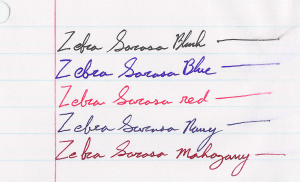 Zebra Sarasa Black
Zebra Sarasa Blue
Zebra Sarasa red
Zebra Sarasa Navy
Zebra Sarasa Mahogany